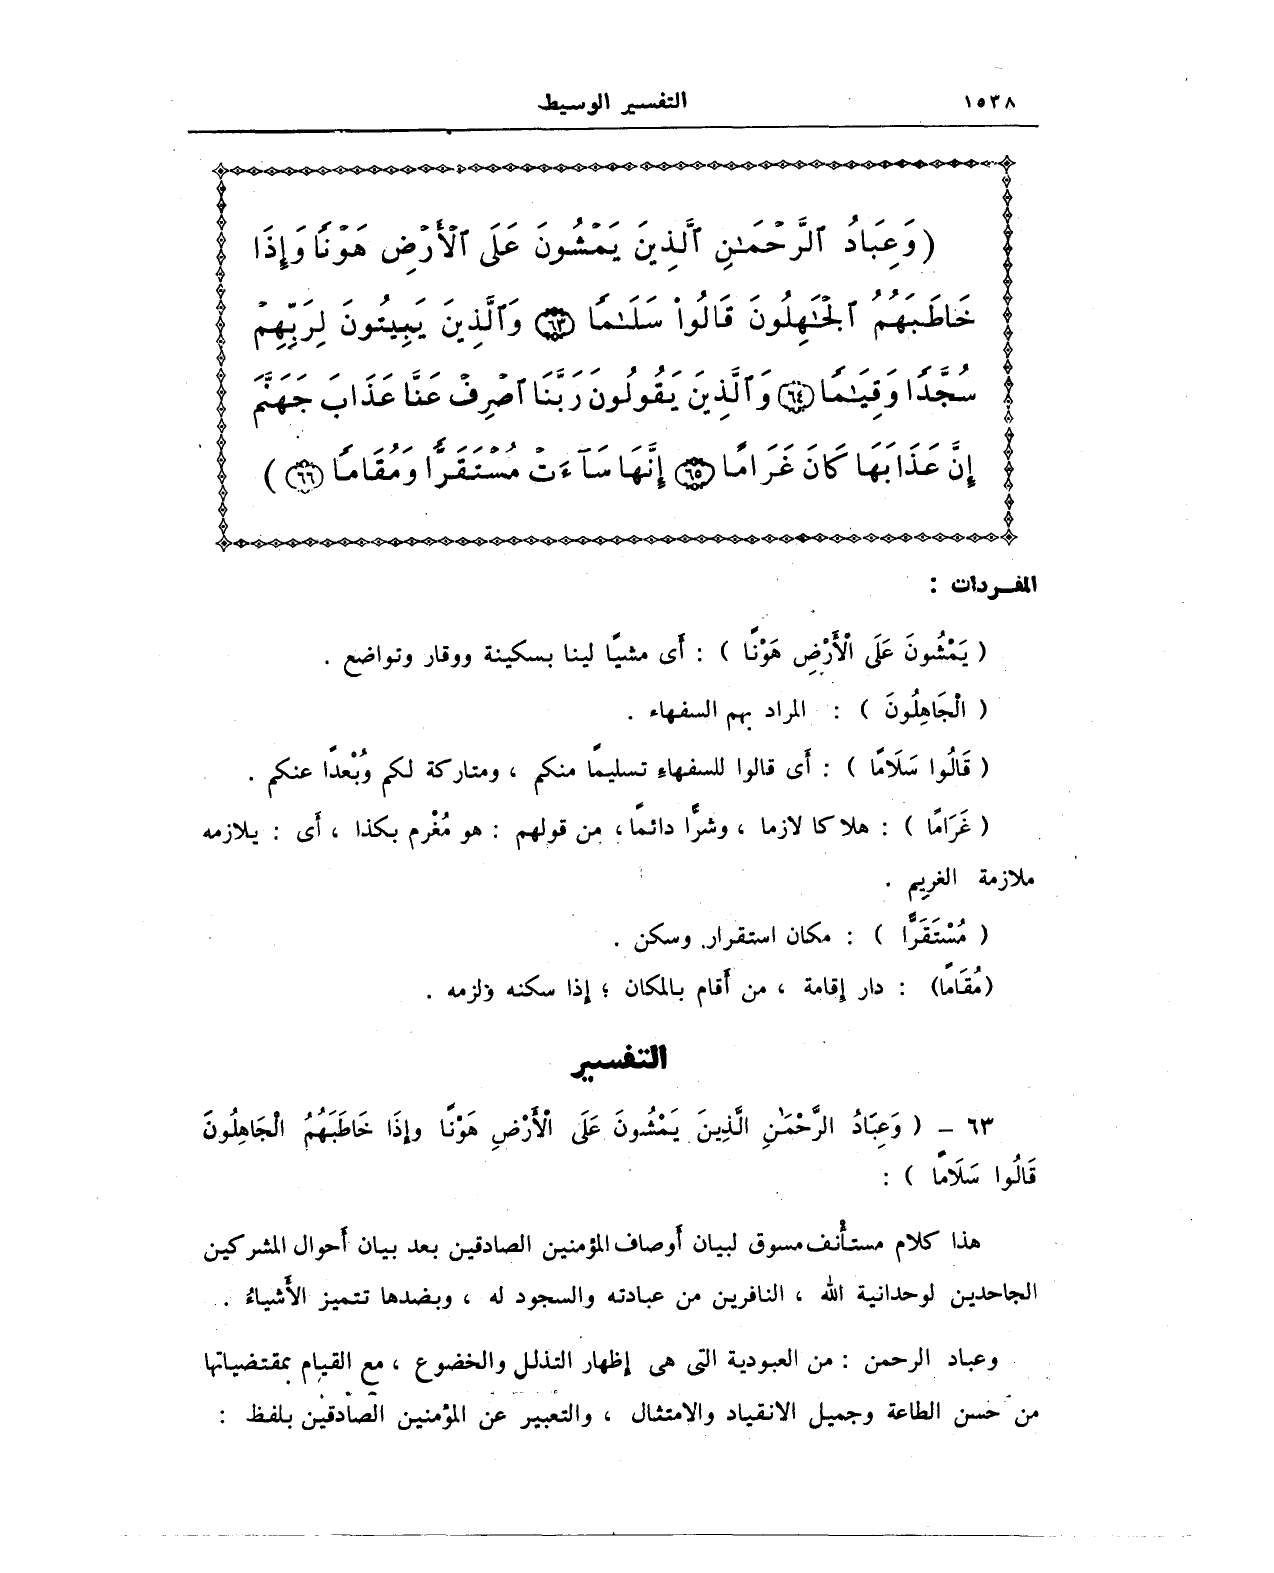 ١٥٣٨ التفسير الوسيط
(وَعِبَادُ ٱلرَّحْمَـٰنِ ٱلَّذِينَ يَمْشُونَ عَلَى ٱلْأَرْضِ هَوْنًا وَإِذَا
خَاطَبَهُمُ ٱلْجَـٰهِلُونَ قَالُوا۟ سَلَـٰمًا ٦٣ وَٱلَّذِينَ يَبِيتُونَ لِرَبِّهِمْ
سُجَّدًا وَقِيَـٰمًا ٦٤ وَٱلَّذِينَ يَقُولُونَ رَبَّنَا ٱصْرِفْ عَنَّا عَذَابَ جَهَنَّمَ
إِنَّ عَذَابَهَا كَانَ غَرَامًا ٦٥ إِنَّهَا سَآءَتْ مُسْتَقَرًّا وَمُقَامًا ٦٦)
المفـردات :
( يَمْشُونَ عَلَى الْأَرْضِ هَوْنًا ) : أَى مشيًا لينا بسكينة ووقار وتواضع .
( الْجَاهِلُونَ ) : المراد بهم السفهاء .
( قَالُوا سَلَامًا ) : أَى قالوا للسفهاءِ تسليمًا منكم ، ومتاركة لكم وبُعْدًا عنكم .
( غَرَامًا ) : هلاكا لازما ، وشرًّا دائمًا، من قولهم : هو مُغْرم بكذا ، أَى : يلازمه
ملازمة الغريم .
( مُسْتَقَرًّا ) : مكان استقرار وسكن .
(مُقَامًا) : دار إقامة ، من أَقام بالمكان ؛ إذا سكنه ولزمه .
التفسير
٦٣ - ( وَعِبَادُ الرَّحْمَٰنِ الَّذِينَ يَمْشُونَ عَلَى الْأَرْضِ هَوْنًا وإِذَا خَاطَبَهُمُ الْجَاهِلُونَ
قَالُوا سَلَامًا ) :
هذا كلام مستأْنف مسوق لبيان أَوصاف المؤمنين الصادقين بعد بيان أَحوال المشركين
الجاحدين لوحدانية الله ، النافرين من عبادته والسجود له ، وبضدها تتميز الأَشياءُ .
وعباد الرحمن : من العبودية التى هى إظهار التذلل والخضوع ، مع القيام بمقتضياتها
من حسن الطاعة وجميل الانقياد والامتثال ، والتعبير عن المؤمنين الصادقين بلفظ :